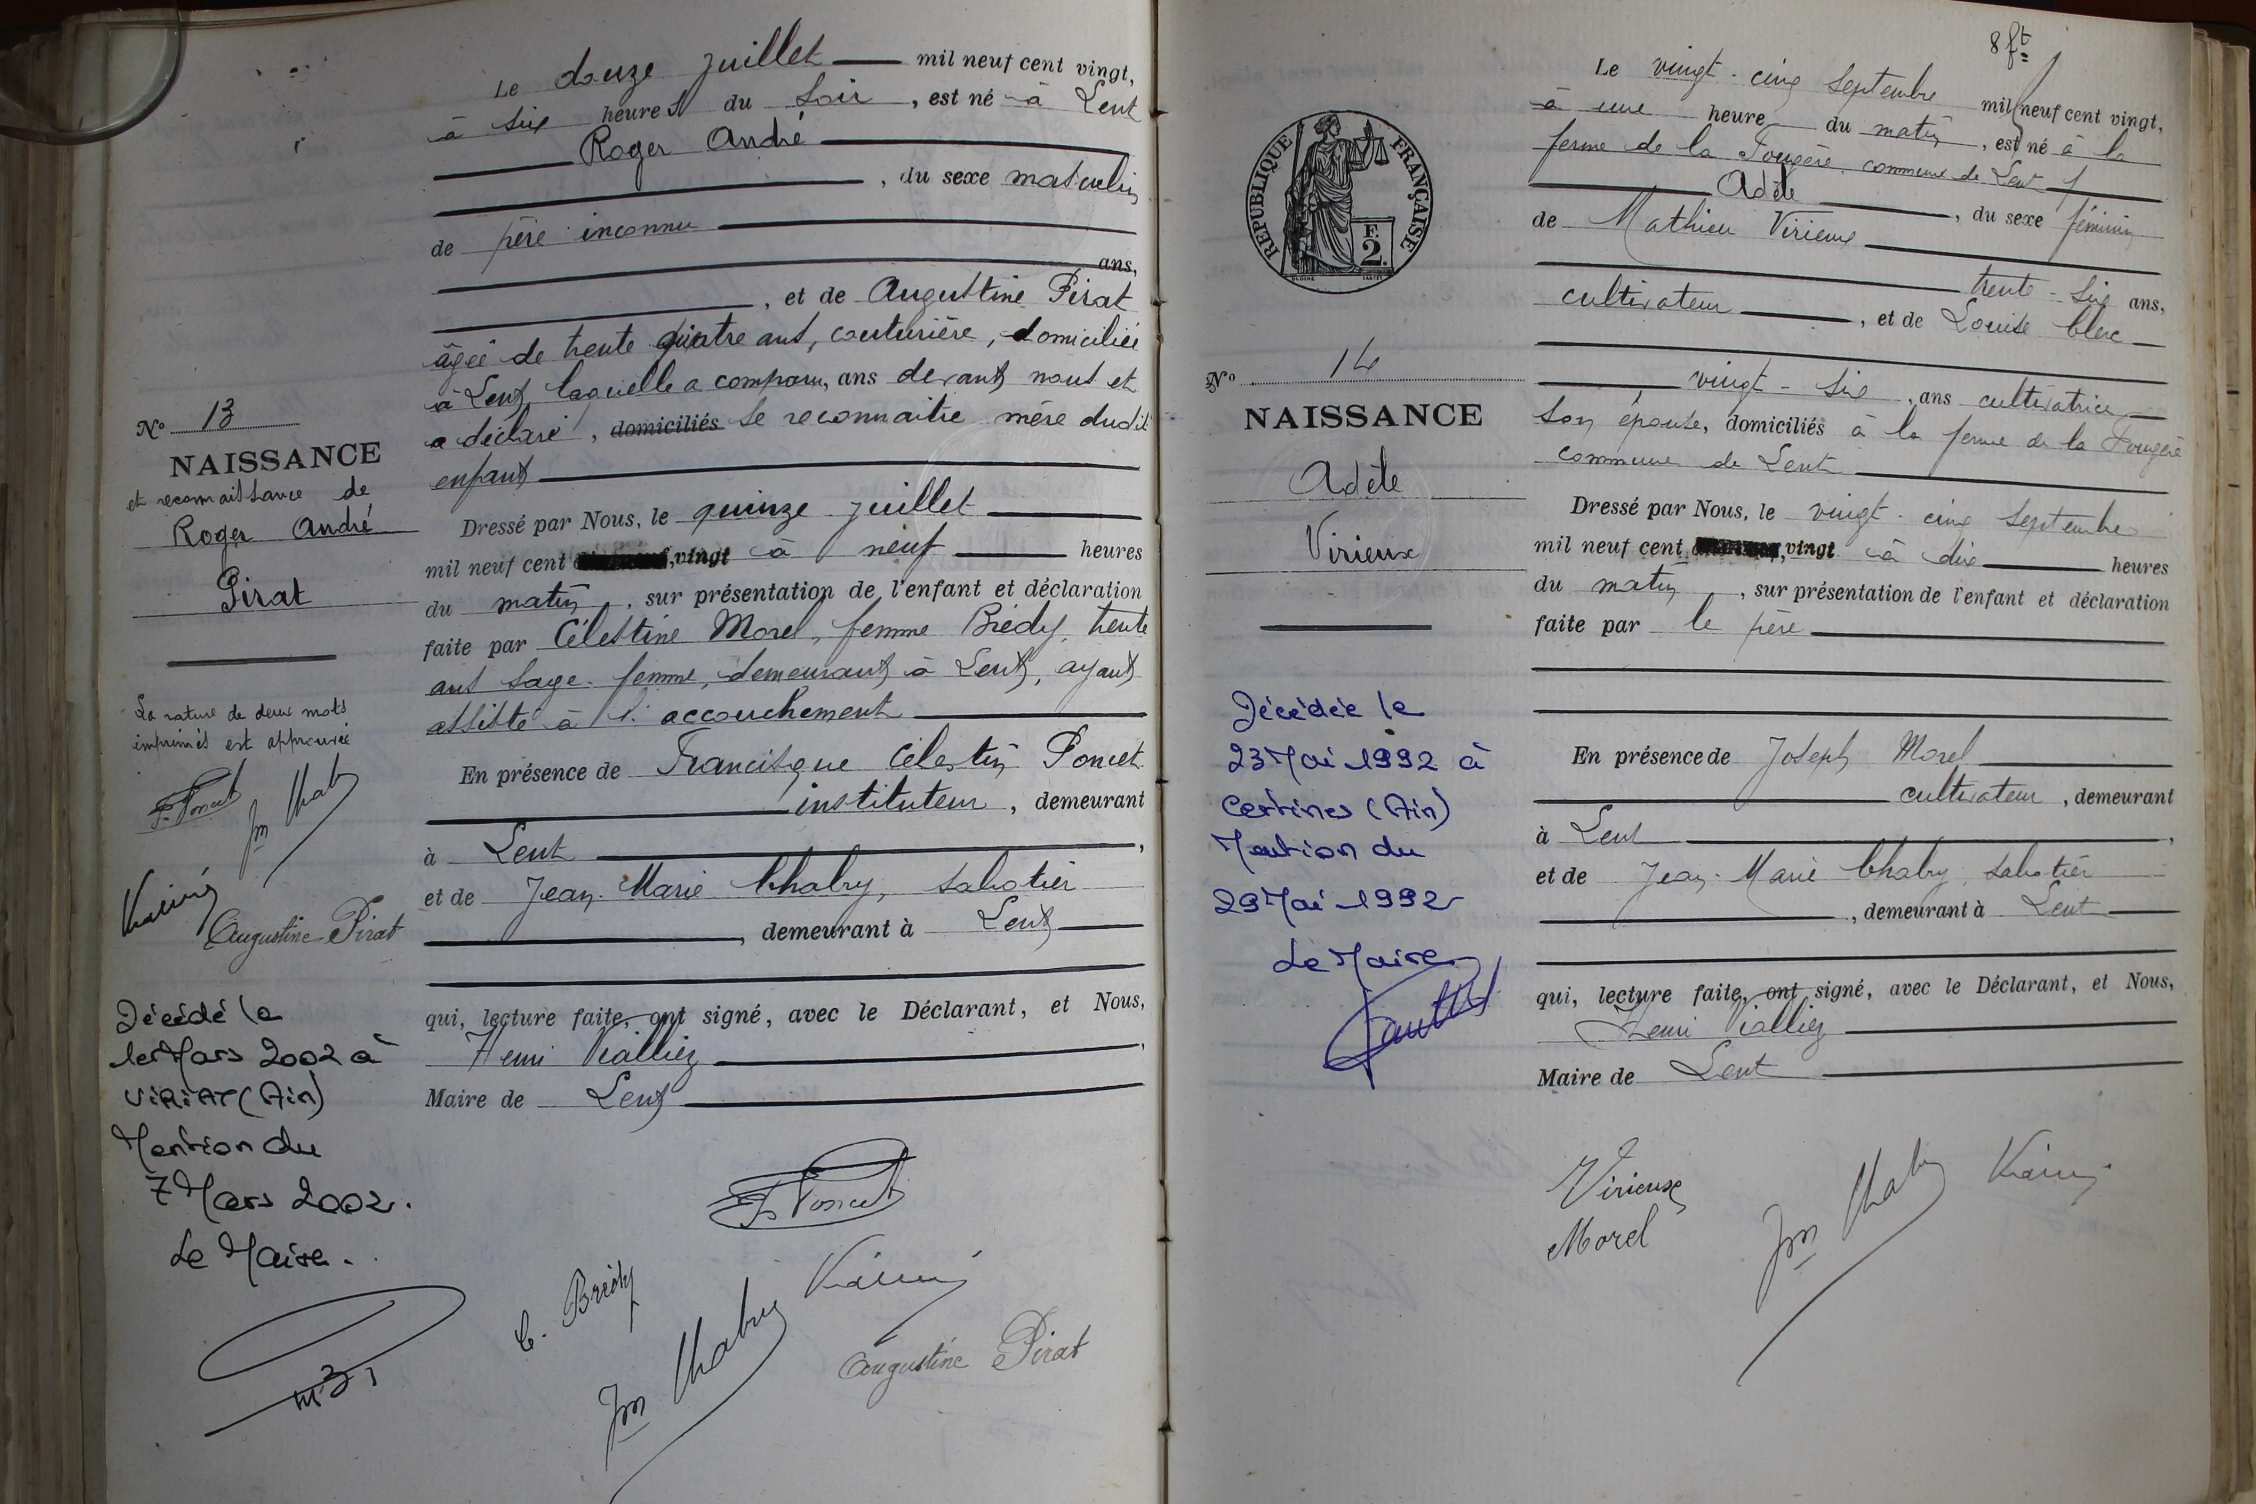 Le douze juillet mil neuf cent vingt,
à six heures du soir, est né à Lent
Roger André
, du sexe masculin
de père inconnu
ans,
, et de Augustine Pirat
âgée de trente quatre ans, couturière, domiciliée
à Lent, laquelle a comparu, ans devant nous et
a déclaré, domiciliés se reconnaitre mère dudit
enfant
Dressé par Nous, le quinze juillet
mil neuf cent ,vingt à neuf heures
du matin, sur présentation de l'enfant et déclaration
faite par Célestine Morel, femme Brédy, trente
ans sage-femme, demeurant à Lent, ayant
assisté à l'accouchement
En présence de Francisque Célestin Poncet
instituteur, demeurant
à Lent,
et de Jean-Marie Chabry, sabotier
, demeurant à Lent
qui, lecture faite, ont signé, avec le Déclarant, et Nous,
Henri Vialliez
Maire de Lent
F. Poncet
C. Brédy
Jm Chabry
Augustine Pirat
No 13
NAISSANCE
et reconnaissance de
Roger André
Pirat
La rature de deux mots
imprimés est approuvée
F. Poncet
Jm Chabry
Augustine Pirat
Décédé le
1er Mars 2002 à
VIRIAT (Ain)
Mention du
7 Mars 2002.
Le Maire.
8 ft
Le vingt-cinq septembre mil neuf cent vingt,
à une heure du matin, est né à la
ferme de la Fougère, commune de Lent
Adèle, du sexe féminin
de Mathieu Virieux
trente-six ans,
cultivateur, et de Louise Clerc
vingt-six, ans cultivatrice
son épouse, domiciliés à la ferme de la Fougère
commune de Lent
Dressé par Nous, le vingt-cinq septembre
mil neuf cent ,vingt à dix heures
du matin, sur présentation de l'enfant et déclaration
faite par le père
En présence de Joseph Morel
cultivateur, demeurant
à Lent,
et de Jean-Marie Chabry, sabotier
, demeurant à Lent
qui, lecture faite, ont signé, avec le Déclarant, et Nous,
Henri Vialliez
Maire de Lent
Virieux
Morel
Jm Chabry
RÉPUBLIQUE FRANÇAISE
F.
2.
No 14
NAISSANCE
Adèle
Virieux
Décédée le
23 Mai 1992 à
Certines (Ain)
Mention du
29 Mai 1992
Le Maire